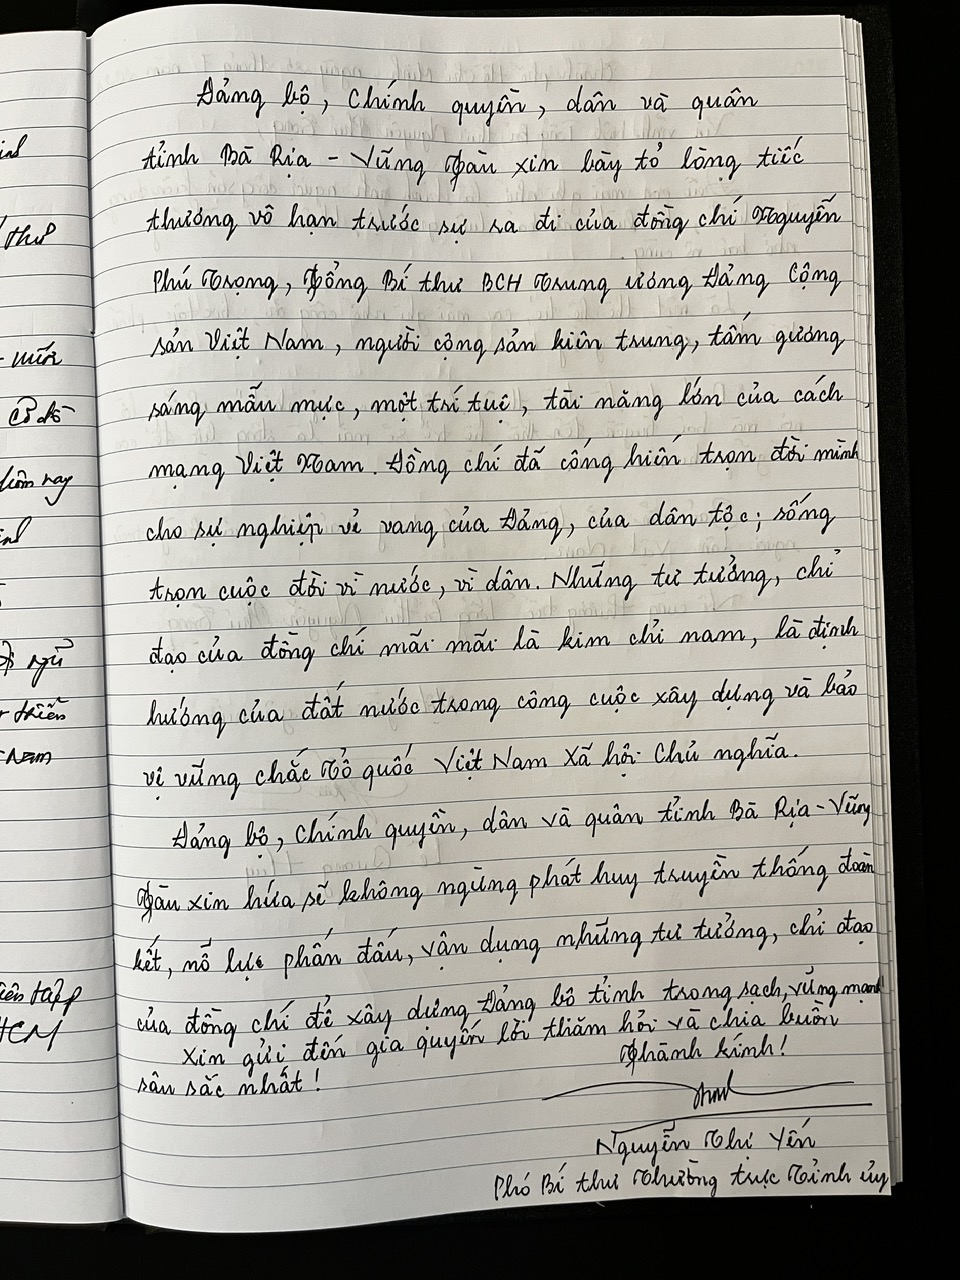 Đảng bộ, Chính quyền, dân và quân
tỉnh Bà Rịa - Vũng Tàu xin bày tỏ lòng tiếc
thương vô hạn trước sự ra đi của đồng chí Nguyễn
Phú Trọng, Tổng Bí thư BCH Trung ương Đảng Cộng
sản Việt Nam, người cộng sản kiên trung, tấm gương
sáng mẫu mực, một trí tuệ, tài năng lớn của cách
mạng Việt Nam. Đồng chí đã cống hiến trọn đời mình
cho sự nghiệp vẻ vang của Đảng, của dân tộc; sống
trọn cuộc đời vì nước, vì dân. Những tư tưởng, chỉ
đạo của đồng chí mãi mãi là kim chỉ nam, là định
hướng của đất nước trong công cuộc xây dựng và bảo
vệ vững chắc Tổ quốc Việt Nam Xã hội Chủ nghĩa.
Đảng bộ, Chính quyền, dân và quân tỉnh Bà Rịa - Vũng
Tàu xin hứa sẽ không ngừng phát huy truyền thống đoàn
kết, nỗ lực phấn đấu, vận dụng những tư tưởng, chỉ đạo
của đồng chí để xây dựng Đảng bộ tỉnh trong sạch, vững mạnh
Xin gửi đến gia quyến lời thăm hỏi và chia buồn
sâu sắc nhất!
Thành kính!
Nguyễn Thị Yến
Phó Bí thư Thường trực Tỉnh ủy
thư
cơ đồ
hôm nay
ngũ
HCM